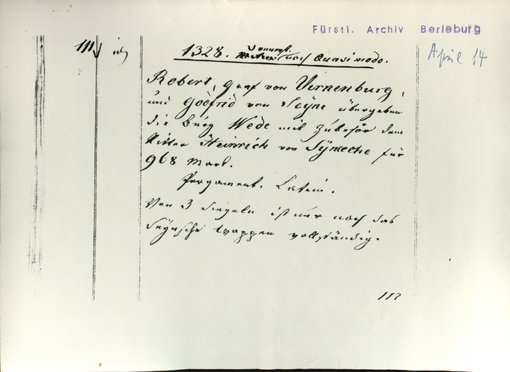 Fürstl. Archiv Berleburg
April 14
111
1328. nach Quasimodo.
Robert, Graf von Virnenburg,
und Godfrid von Seyne übergeben
die Burg Wede mit Zubehör dem
Ritter Heinrich von Symeche für
968 Mark.
Pergament. Latein.
Von 3 Siegeln ist nur noch das
Seynsche Wappen vollständig.
113